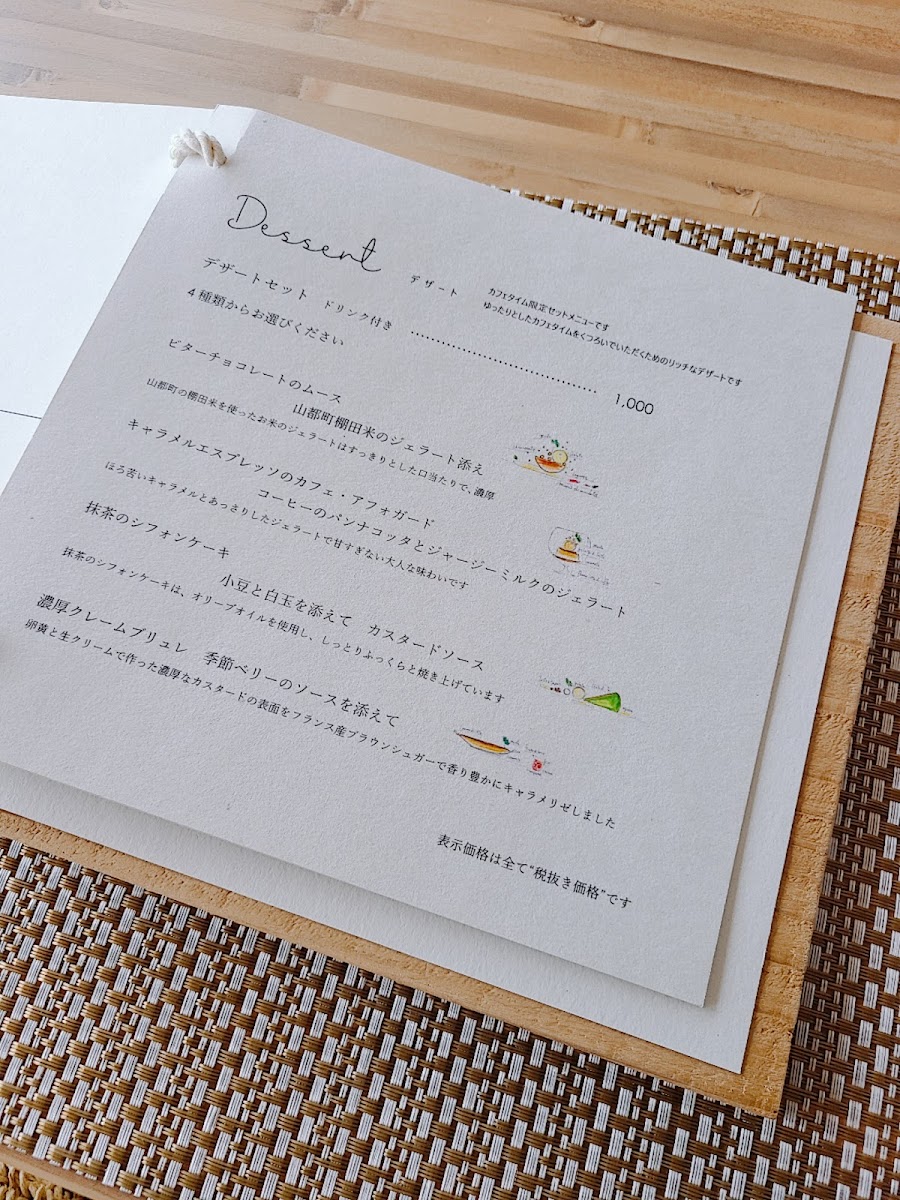 Dessert
デザート
カフェタイム限定セットメニューです
ゆったりとしたカフェタイムをくつろいでいただくためのリッチなデザートです
デザートセット ドリンク付き ........................................ 1,000
4種類からお選びください
ビターチョコレートのムース
山都町棚田米のジェラート添え
山都町の棚田米を使ったお米のジェラートはすっきりとした口当たりで、濃厚
キャラメルエスプレッソのカフェ・アフォガード
コーヒーのパンナコッタとジャージーミルクのジェラート
ほろ苦いキャラメルとあっさりしたジェラートで甘すぎない大人な味わいです
抹茶のシフォンケーキ
小豆と白玉を添えて カスタードソース
抹茶のシフォンケーキは、オリーブオイルを使用し、しっとりふっくらと焼き上げています
濃厚クレームブリュレ 季節ベリーのソースを添えて
卵黄と生クリームで作った濃厚なカスタードの表面をフランス産ブラウンシュガーで香り豊かにキャラメリゼしました
表示価格は全て"税抜き価格"です